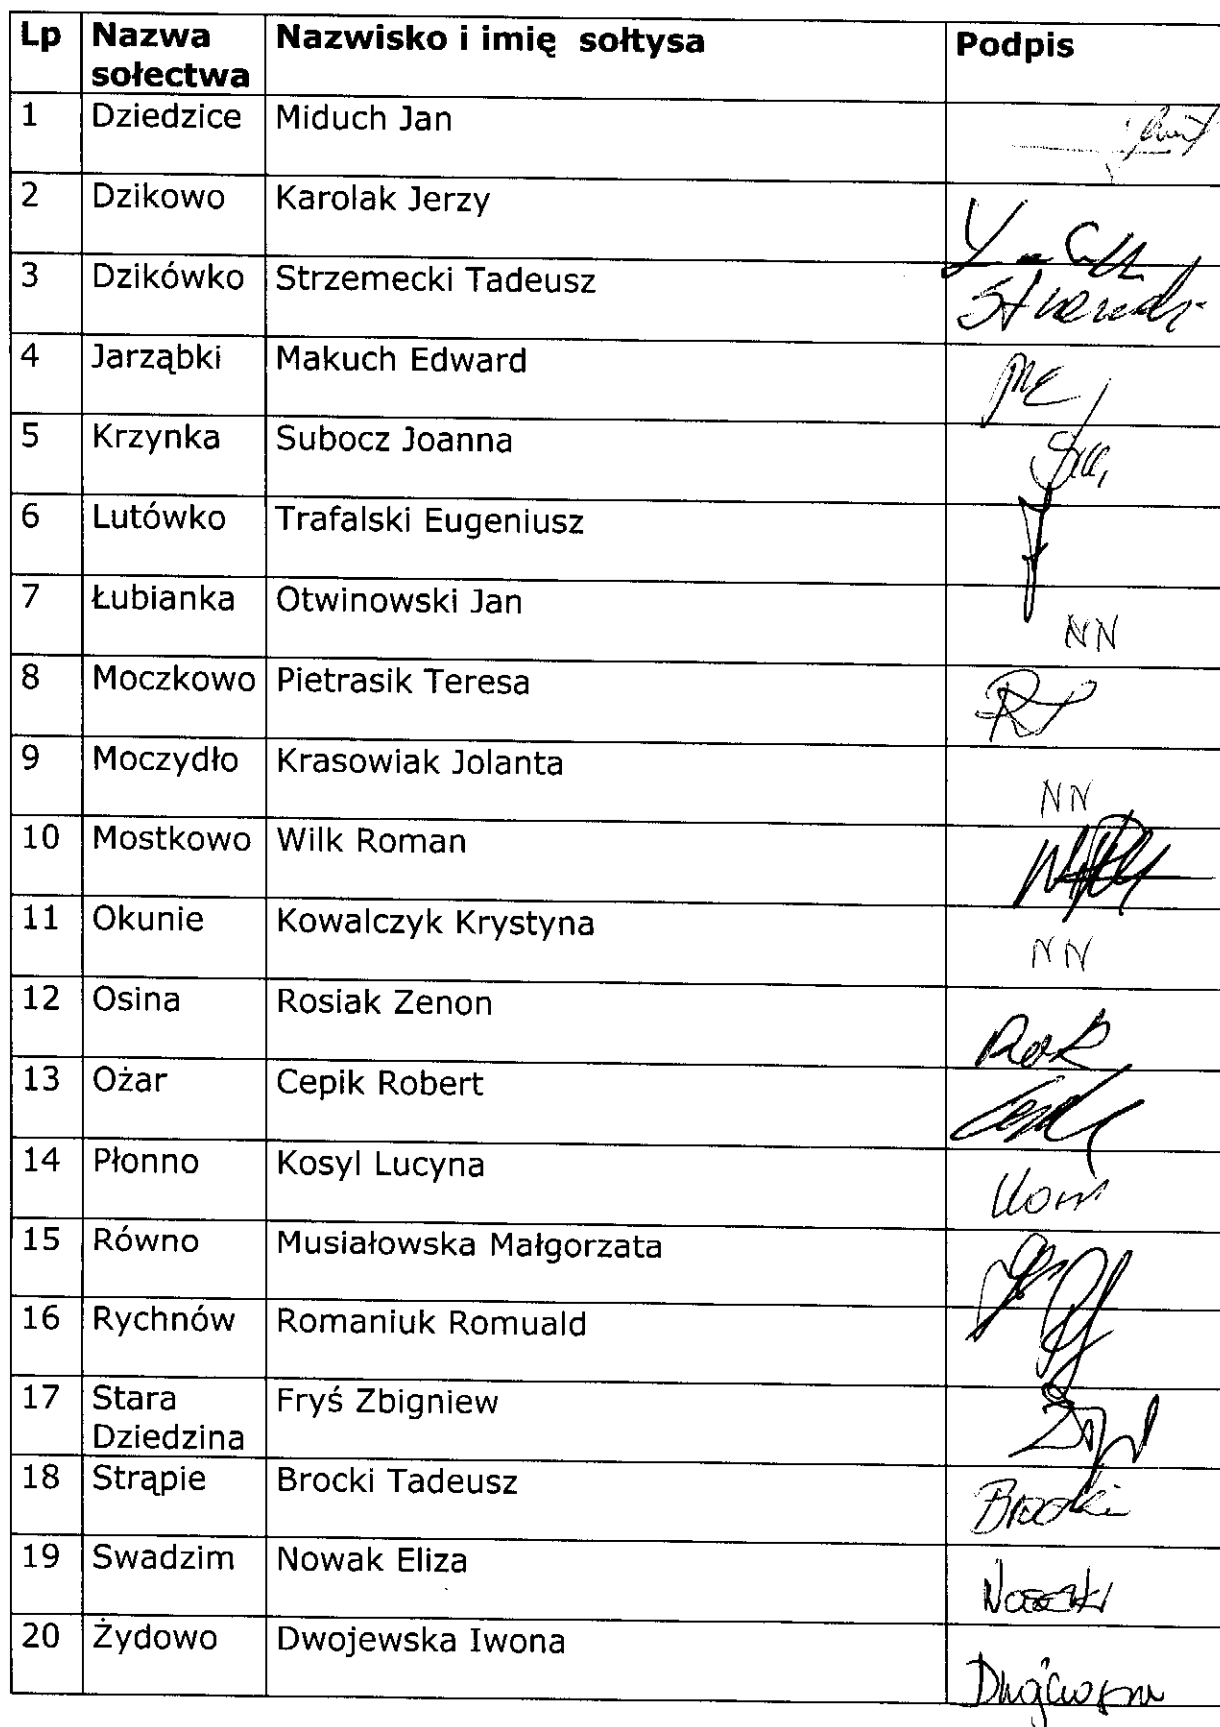 Lp Nazwa sołectwa Nazwisko i imię sołtysa Podpis
1 Dziedzice Miduch Jan
2 Dzikowo Karolak Jerzy
3 Dzikówko Strzemecki Tadeusz
4 Jarząbki Makuch Edward
5 Krzynka Subocz Joanna
6 Lutówko Trafalski Eugeniusz
7 Łubianka Otwinowski Jan NN
8 Moczkowo Pietrasik Teresa
9 Moczydło Krasowiak Jolanta NN
10 Mostkowo Wilk Roman
11 Okunie Kowalczyk Krystyna NN
12 Osina Rosiak Zenon
13 Ożar Cepik Robert
14 Płonno Kosyl Lucyna
15 Równo Musiałowska Małgorzata
16 Rychnów Romaniuk Romuald
17 Stara Dziedzina Fryś Zbigniew
18 Strąpie Brocki Tadeusz Brocki
19 Swadzim Nowak Eliza
20 Żydowo Dwojewska Iwona